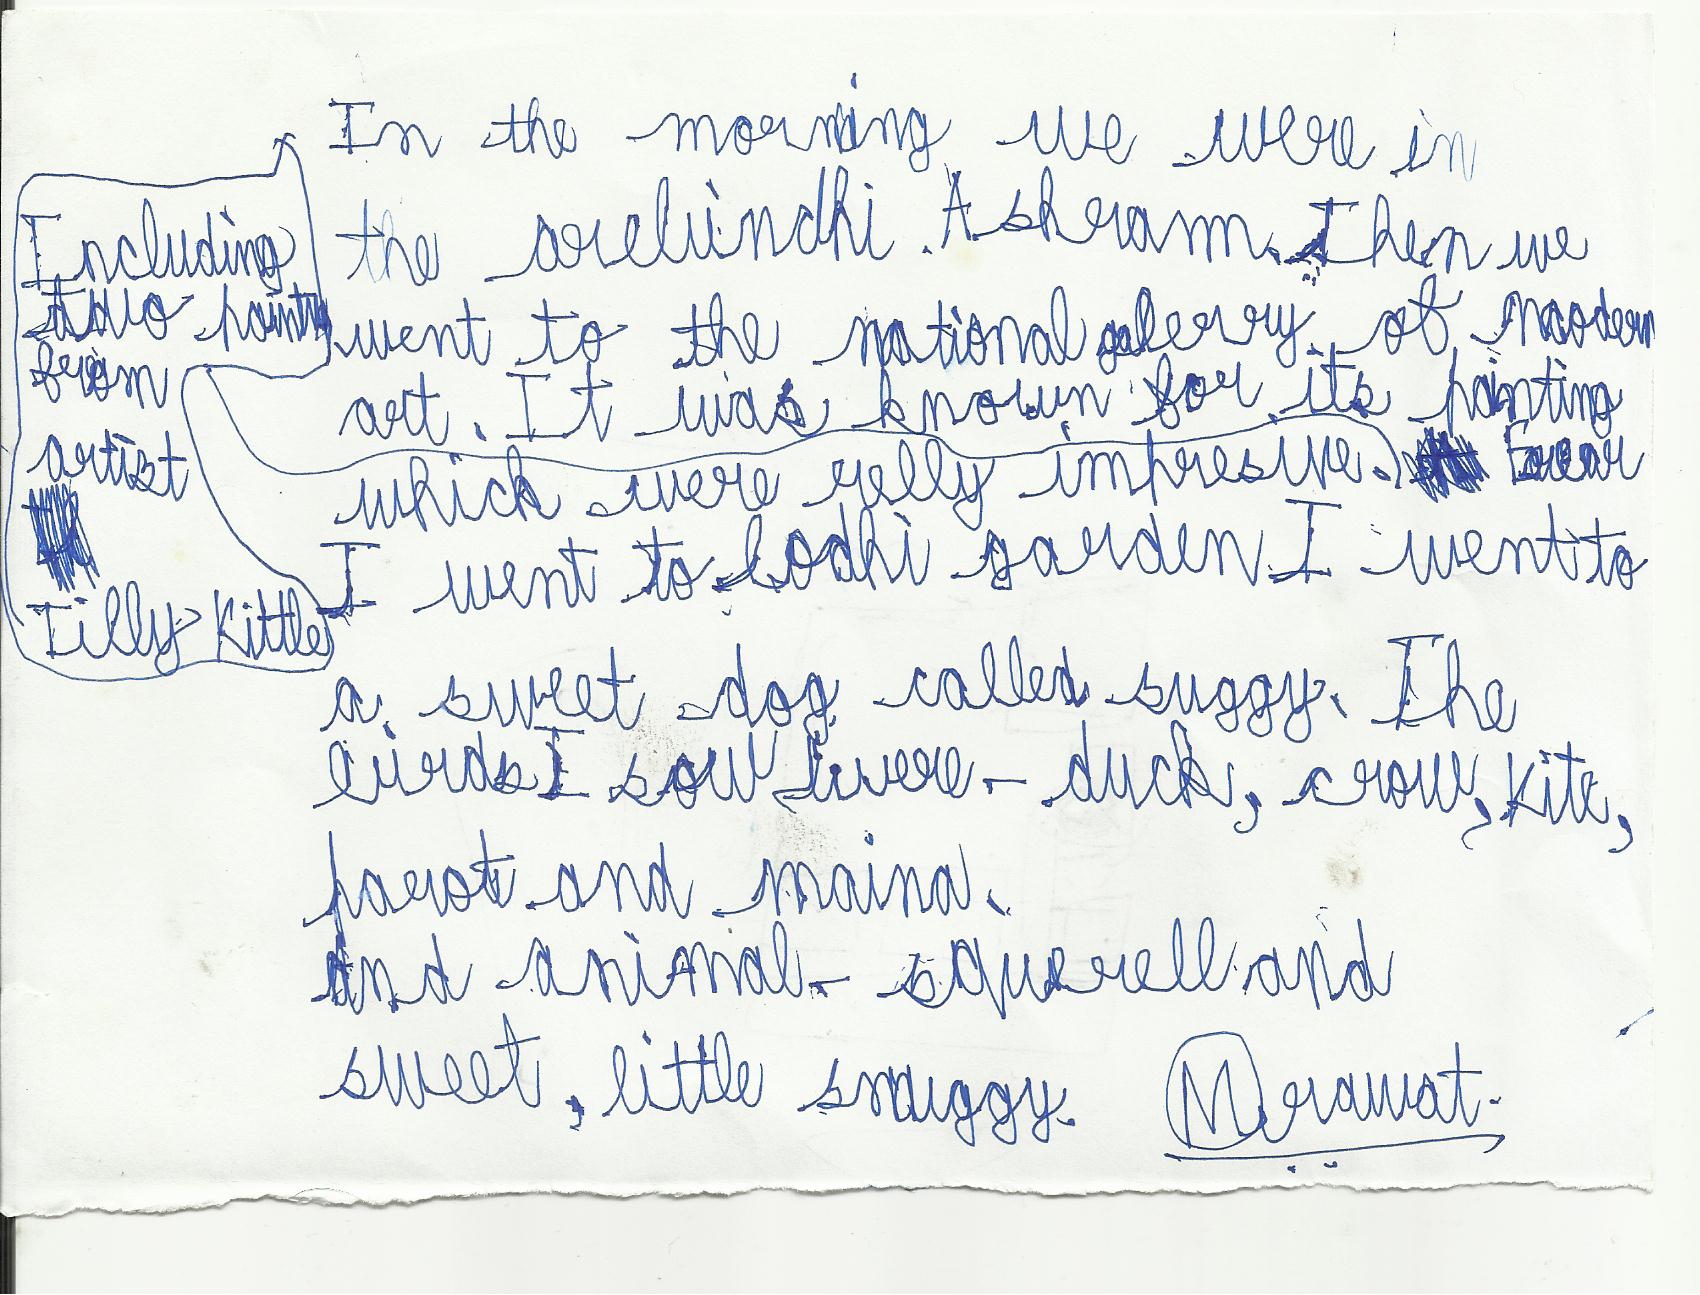 In the morning we were in
the arebindhi Ashram. Then we
went to the national galerry of modern
art. It was known for its painting
which were relly impresive.
Including
two painting
from
artist
Tilly Kittle
I went to Lodhi garden I went to
a sweet dog called suggy. The
birds I sow were - duck, crow, kite,
parot and maina.
And animal - squerell and
sweet, little snuggy. Mrawat.